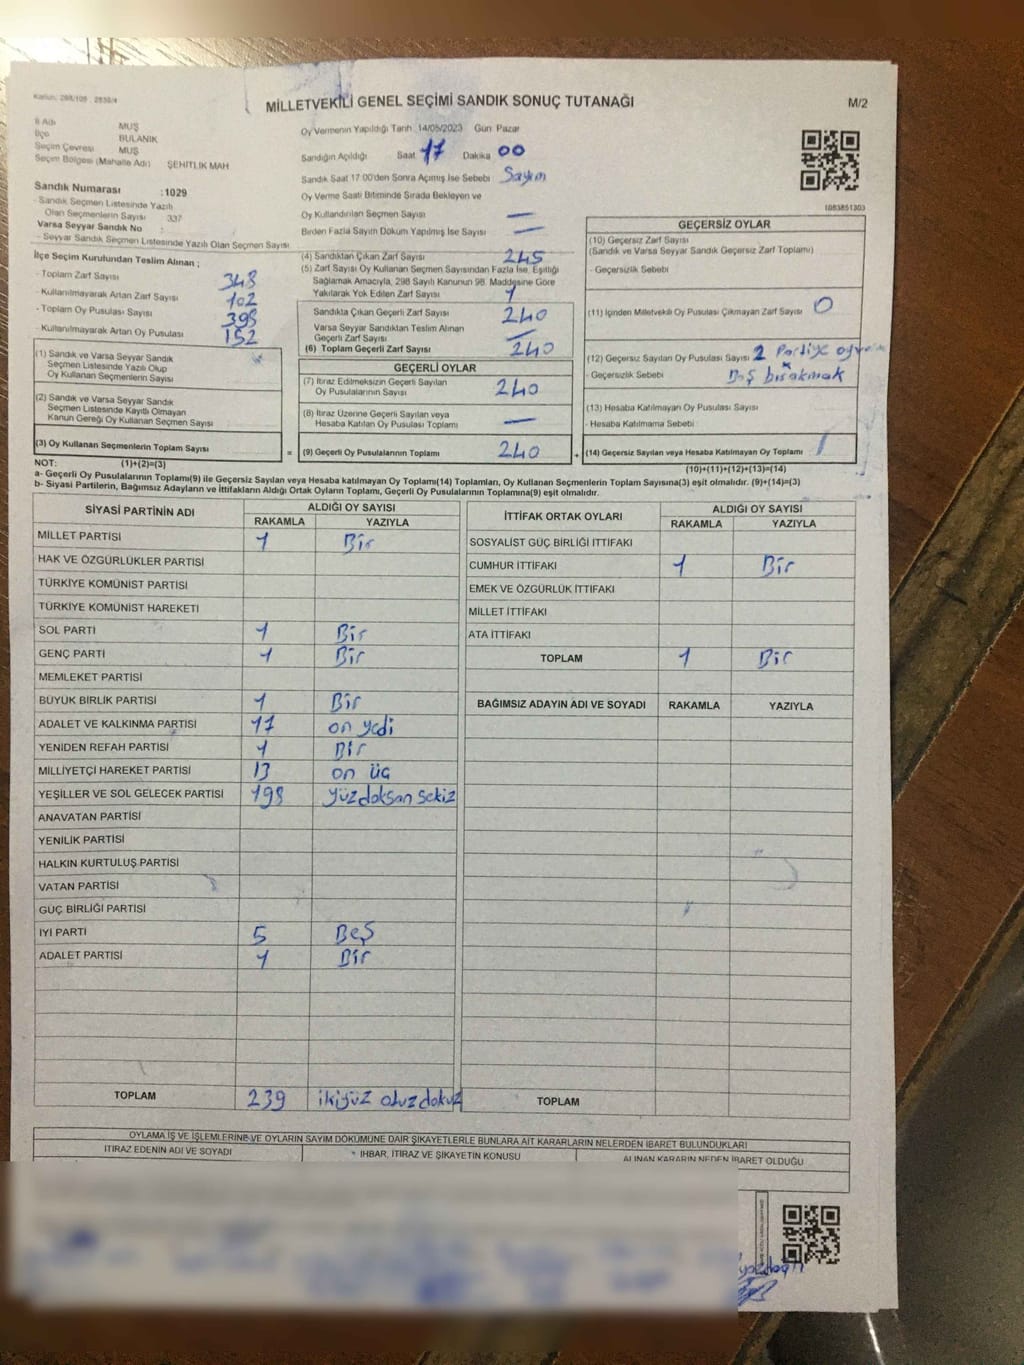 Kanun: 298/105 . 2839/4
MİLLETVEKİLİ GENEL SEÇİMİ SANDIK SONUÇ TUTANAĞI
M/2
İl Adı MUŞ
İlçe BULANIK
Seçim Çevresi MUŞ
Seçim Bölgesi (Mahalle Adı) ŞEHİTLİK MAH
Sandık Numarası :1029
- Sandık Seçmen Listesinde Yazılı
Olan Seçmenlerin Sayısı 337
Varsa Seyyar Sandık No :
- Seyyar Sandık Seçmen Listesinde Yazılı Olan Seçmen Sayısı
İlçe Seçim Kurulundan Teslim Alınan ;
- Toplam Zarf Sayısı 348
- Kullanılmayarak Artan Zarf Sayısı 102
- Toplam Oy Pusulası Sayısı
- Kullanılmayarak Artan Oy Pusulası 152
(1) Sandık ve Varsa Seyyar Sandık
Seçmen Listesinde Yazılı Olup
Oy Kullanan Seçmenlerin Sayısı
(2) Sandık ve Varsa Seyyar Sandık
Seçmen Listesinde Kayıtlı Olmayan
Kanun Gereği Oy Kullanan Seçmen Sayısı
(3) Oy Kullanan Seçmenlerin Toplam Sayısı =
(1)+(2)=(3)
Oy Vermenin Yapıldığı Tarih 14/05/2023 Gün Pazar
Sandığın Açıldığı Saat 17 Dakika 00
Sandık Saat 17:00'den Sonra Açılmış İse Sebebi Sayım
Oy Verme Saati Bitiminde Sırada Bekleyen ve
Oy Kullandırılan Seçmen Sayısı —
Birden Fazla Sayım Döküm Yapılmış İse Sayısı —
(4) Sandıktan Çıkan Zarf Sayısı 245
(5) Zarf Sayısı Oy Kullanan Seçmen Sayısından Fazla İse, Eşitliği
Sağlamak Amacıyla, 298 Sayılı Kanunun 98. Maddesine Göre
Yakılarak Yok Edilen Zarf Sayısı 1
Sandıkta Çıkan Geçerli Zarf Sayısı 240
Varsa Seyyar Sandıktan Teslim Alınan
Geçerli Zarf Sayısı —
(6) Toplam Geçerli Zarf Sayısı 240
GEÇERLİ OYLAR
(7) İtiraz Edilmeksizin Geçerli Sayılan
Oy Pusulalarının Sayısı 240
(8) İtiraz Üzerine Geçerli Sayılan veya
Hesaba Katılan Oy Pusulası Toplamı —
(9) Geçerli Oy Pusulalarının Toplamı 240 +
1083851303
GEÇERSİZ OYLAR
(10) Geçersiz Zarf Sayısı
(Sandık ve Varsa Seyyar Sandık Geçersiz Zarf Toplamı)
- Geçersizlik Sebebi
(11) İçinden Milletvekili Oy Pusulası Çıkmayan Zarf Sayısı 0
(12) Geçersiz Sayılan Oy Pusulası Sayısı 2 Partiye
- Geçersizlik Sebebi Boş bırakmak
(13) Hesaba Katılmayan Oy Pusulası Sayısı
- Hesaba Katılmama Sebebi
(14) Geçersiz Sayılan veya Hesaba Katılmayan Oy Toplamı
(10)+(11)+(12)+(13)=(14)
NOT:
a- Geçerli Oy Pusulalarının Toplamı(9) ile Geçersiz Sayılan veya Hesaba katılmayan Oy Toplamı(14) Toplamları, Oy Kullanan Seçmenlerin Toplam Sayısına(3) eşit olmalıdır. (9)+(14)=(3)
b- Siyasi Partilerin, Bağımsız Adayların ve İttifakların Aldığı Ortak Oyların Toplamı, Geçerli Oy Pusulalarının Toplamına(9) eşit olmalıdır.
SİYASİ PARTİNİN ADI ALDIĞI OY SAYISI
RAKAMLA YAZIYLA
MİLLET PARTİSİ 1 Bir
HAK VE ÖZGÜRLÜKLER PARTİSİ
TÜRKİYE KOMÜNİST PARTİSİ
TÜRKİYE KOMÜNİST HAREKETİ
SOL PARTİ 1 Bir
GENÇ PARTİ 1 Bir
MEMLEKET PARTİSİ
BÜYÜK BİRLİK PARTİSİ 1 Bir
ADALET VE KALKINMA PARTİSİ 17 on yedi
YENİDEN REFAH PARTİSİ 1 Bir
MİLLİYETÇİ HAREKET PARTİSİ 13 on üç
YEŞİLLER VE SOL GELECEK PARTİSİ 198 yüzdoksan sekiz
ANAVATAN PARTİSİ
YENİLİK PARTİSİ
HALKIN KURTULUŞ PARTİSİ
VATAN PARTİSİ
GÜÇ BİRLİĞİ PARTİSİ
İYİ PARTİ 5 Beş
ADALET PARTİSİ 1 Bir
TOPLAM 239 ikiyüz otuz dokuz
İTTİFAK ORTAK OYLARI ALDIĞI OY SAYISI
RAKAMLA YAZIYLA
SOSYALİST GÜÇ BİRLİĞİ İTTİFAKI
CUMHUR İTTİFAKI 1 Bir
EMEK VE ÖZGÜRLÜK İTTİFAKI
MİLLET İTTİFAKI
ATA İTTİFAKI
TOPLAM 1 Bir
BAĞIMSIZ ADAYIN ADI VE SOYADI RAKAMLA YAZIYLA
TOPLAM
OYLAMA İŞ VE İŞLEMLERİNE VE OYLARIN SAYIM DÖKÜMÜNE DAİR ŞİKAYETLERLE BUNLARA AİT KARARLARIN NELERDEN İBARET BULUNDUKLARI
İTİRAZ EDENİN ADI VE SOYADI
İHBAR, İTİRAZ VE ŞİKAYETİN KONUSU
ALINAN KARARIN NEDEN İBARET OLDUĞU